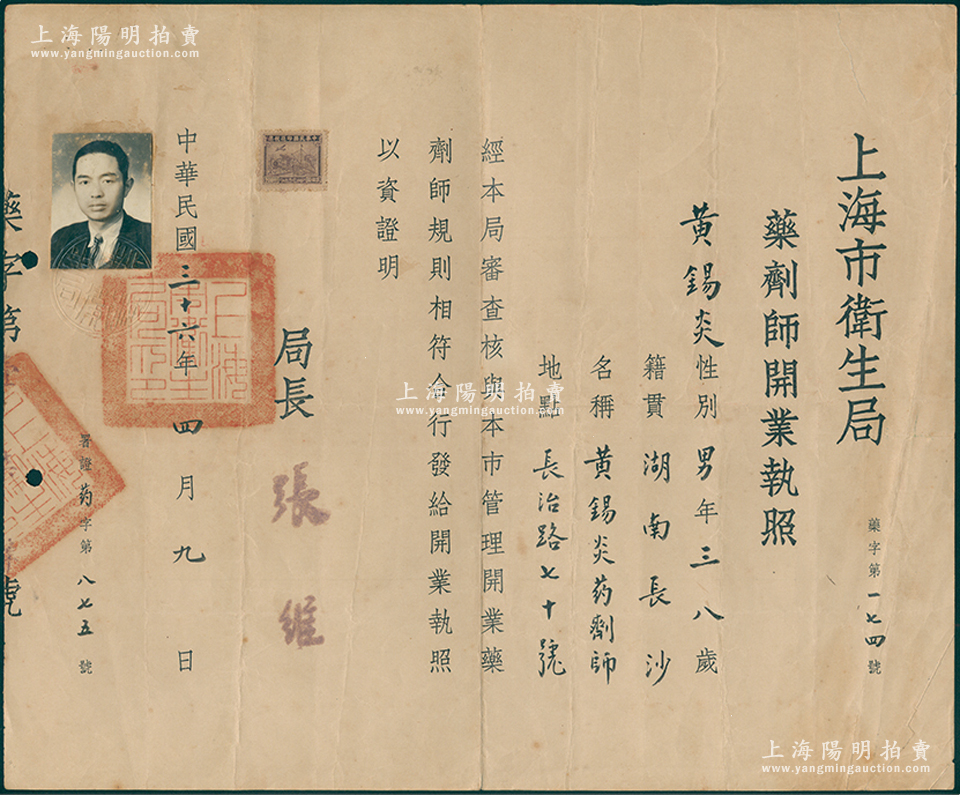 上海市衛生局
藥字第一七四號
藥劑師開業執照
黃錫炎性別男年三八歲
籍貫湖南長沙
名稱黃錫炎药劑師
地點長治路七十號
經本局審查核與本市管理開業藥
劑師規則相符合行發給開業執照
以資證明
局長張維
中華民國三十六年四月九日
署證药字第八七五號
藥字第
號
上海陽明拍賣
www.yangmingauction.com
上海陽明拍賣
www.yangmingauction.com
上海陽明拍賣
www.yangmingauction.com